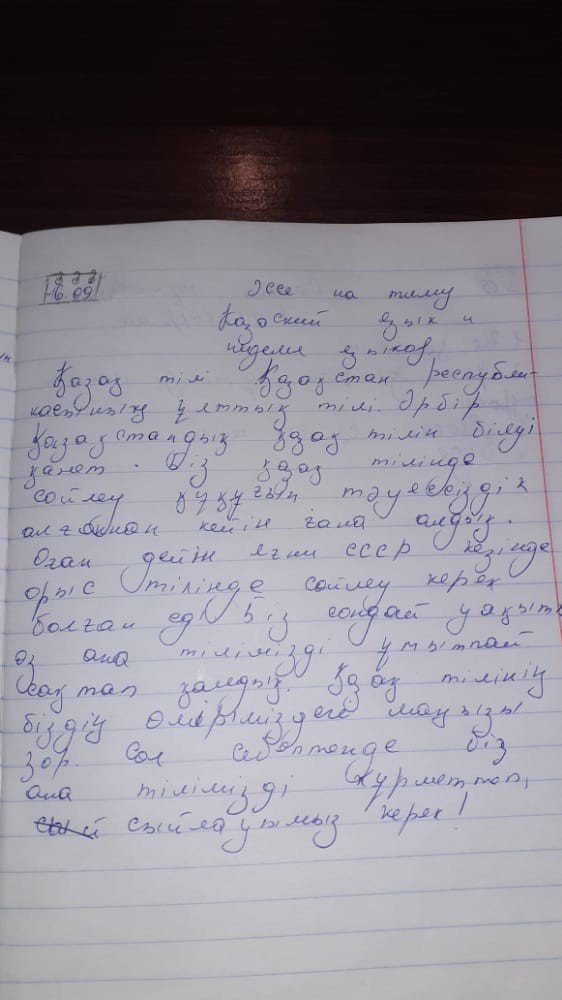 6.09
Эссе на тему
Казахский язык и
недели языков
Қазақ тілі Қазақстан республи-
касының ұлттық тілі. Әрбір
Қазақстандық қазақ тілін білуі
қажет. Біз қазақ тілінде
сөйлеу құқығын тәуелсіздік
алғаннан кейін ғана алдық.
Оған дейін яғни СССР кезінде
орыс тілінде сөйлеу керек
болған еді біз сондай уақытта
өз ана тілімізді ұмытпай
сақтап қалдық. Қазақ тілінің
біздің өміріміздегі маңызы
зор. Сол себептенде біз
ана тілімізді құрметтеп,
сыйлауымыз керек!